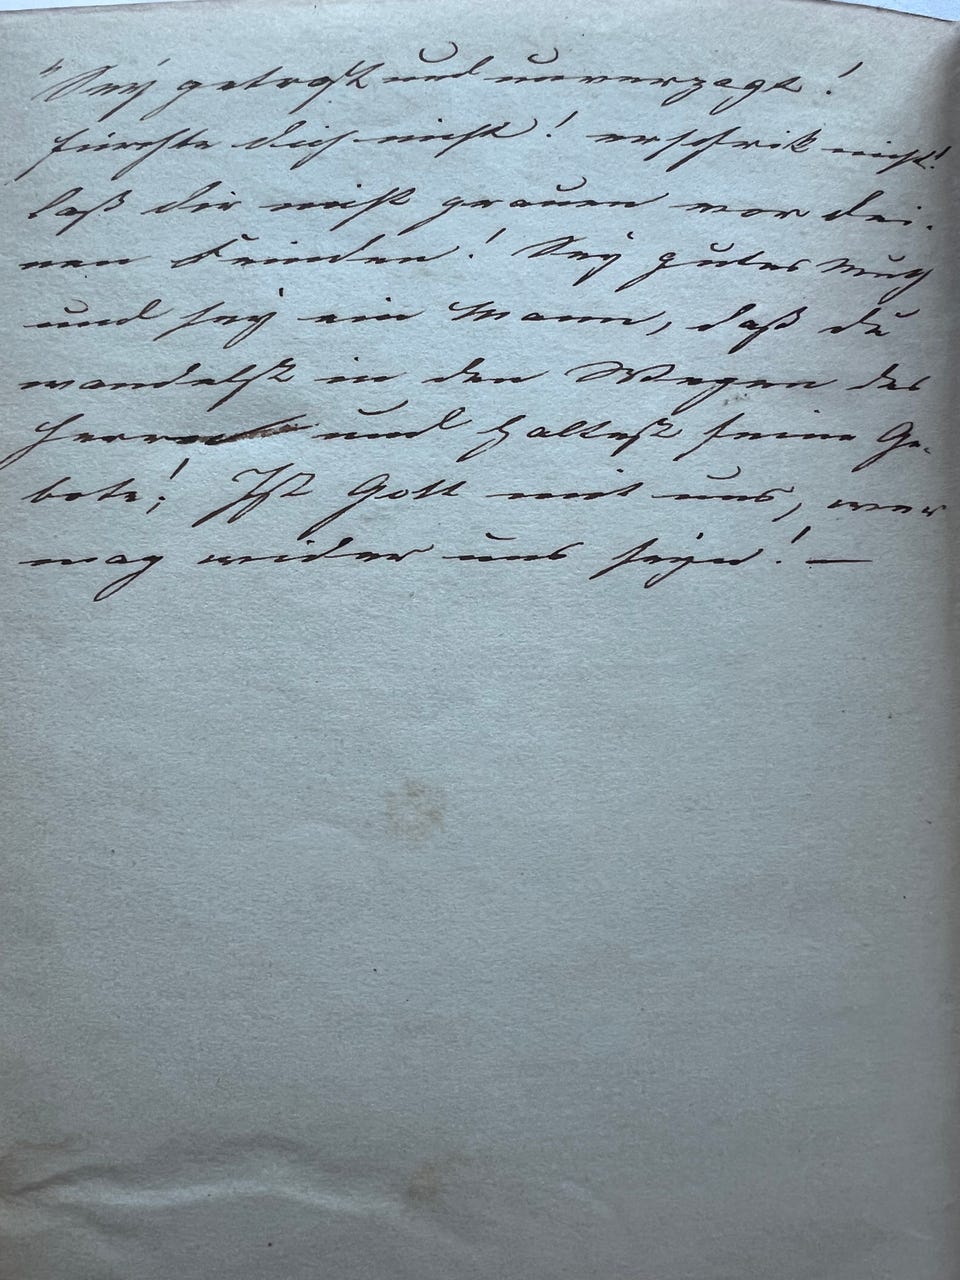 "Sey getrost und unverzagt!
fürchte dich nicht! erschrik nicht!
laß dir nicht grauen vor dei-
nen Feinden! Sey gutes Muth
und sey ein Mann, daß du
wandelst in den Wegen des
Herrn und haltest seine Ge-
bote! Ist Gott mit uns, wer
mag wider uns seyn! —